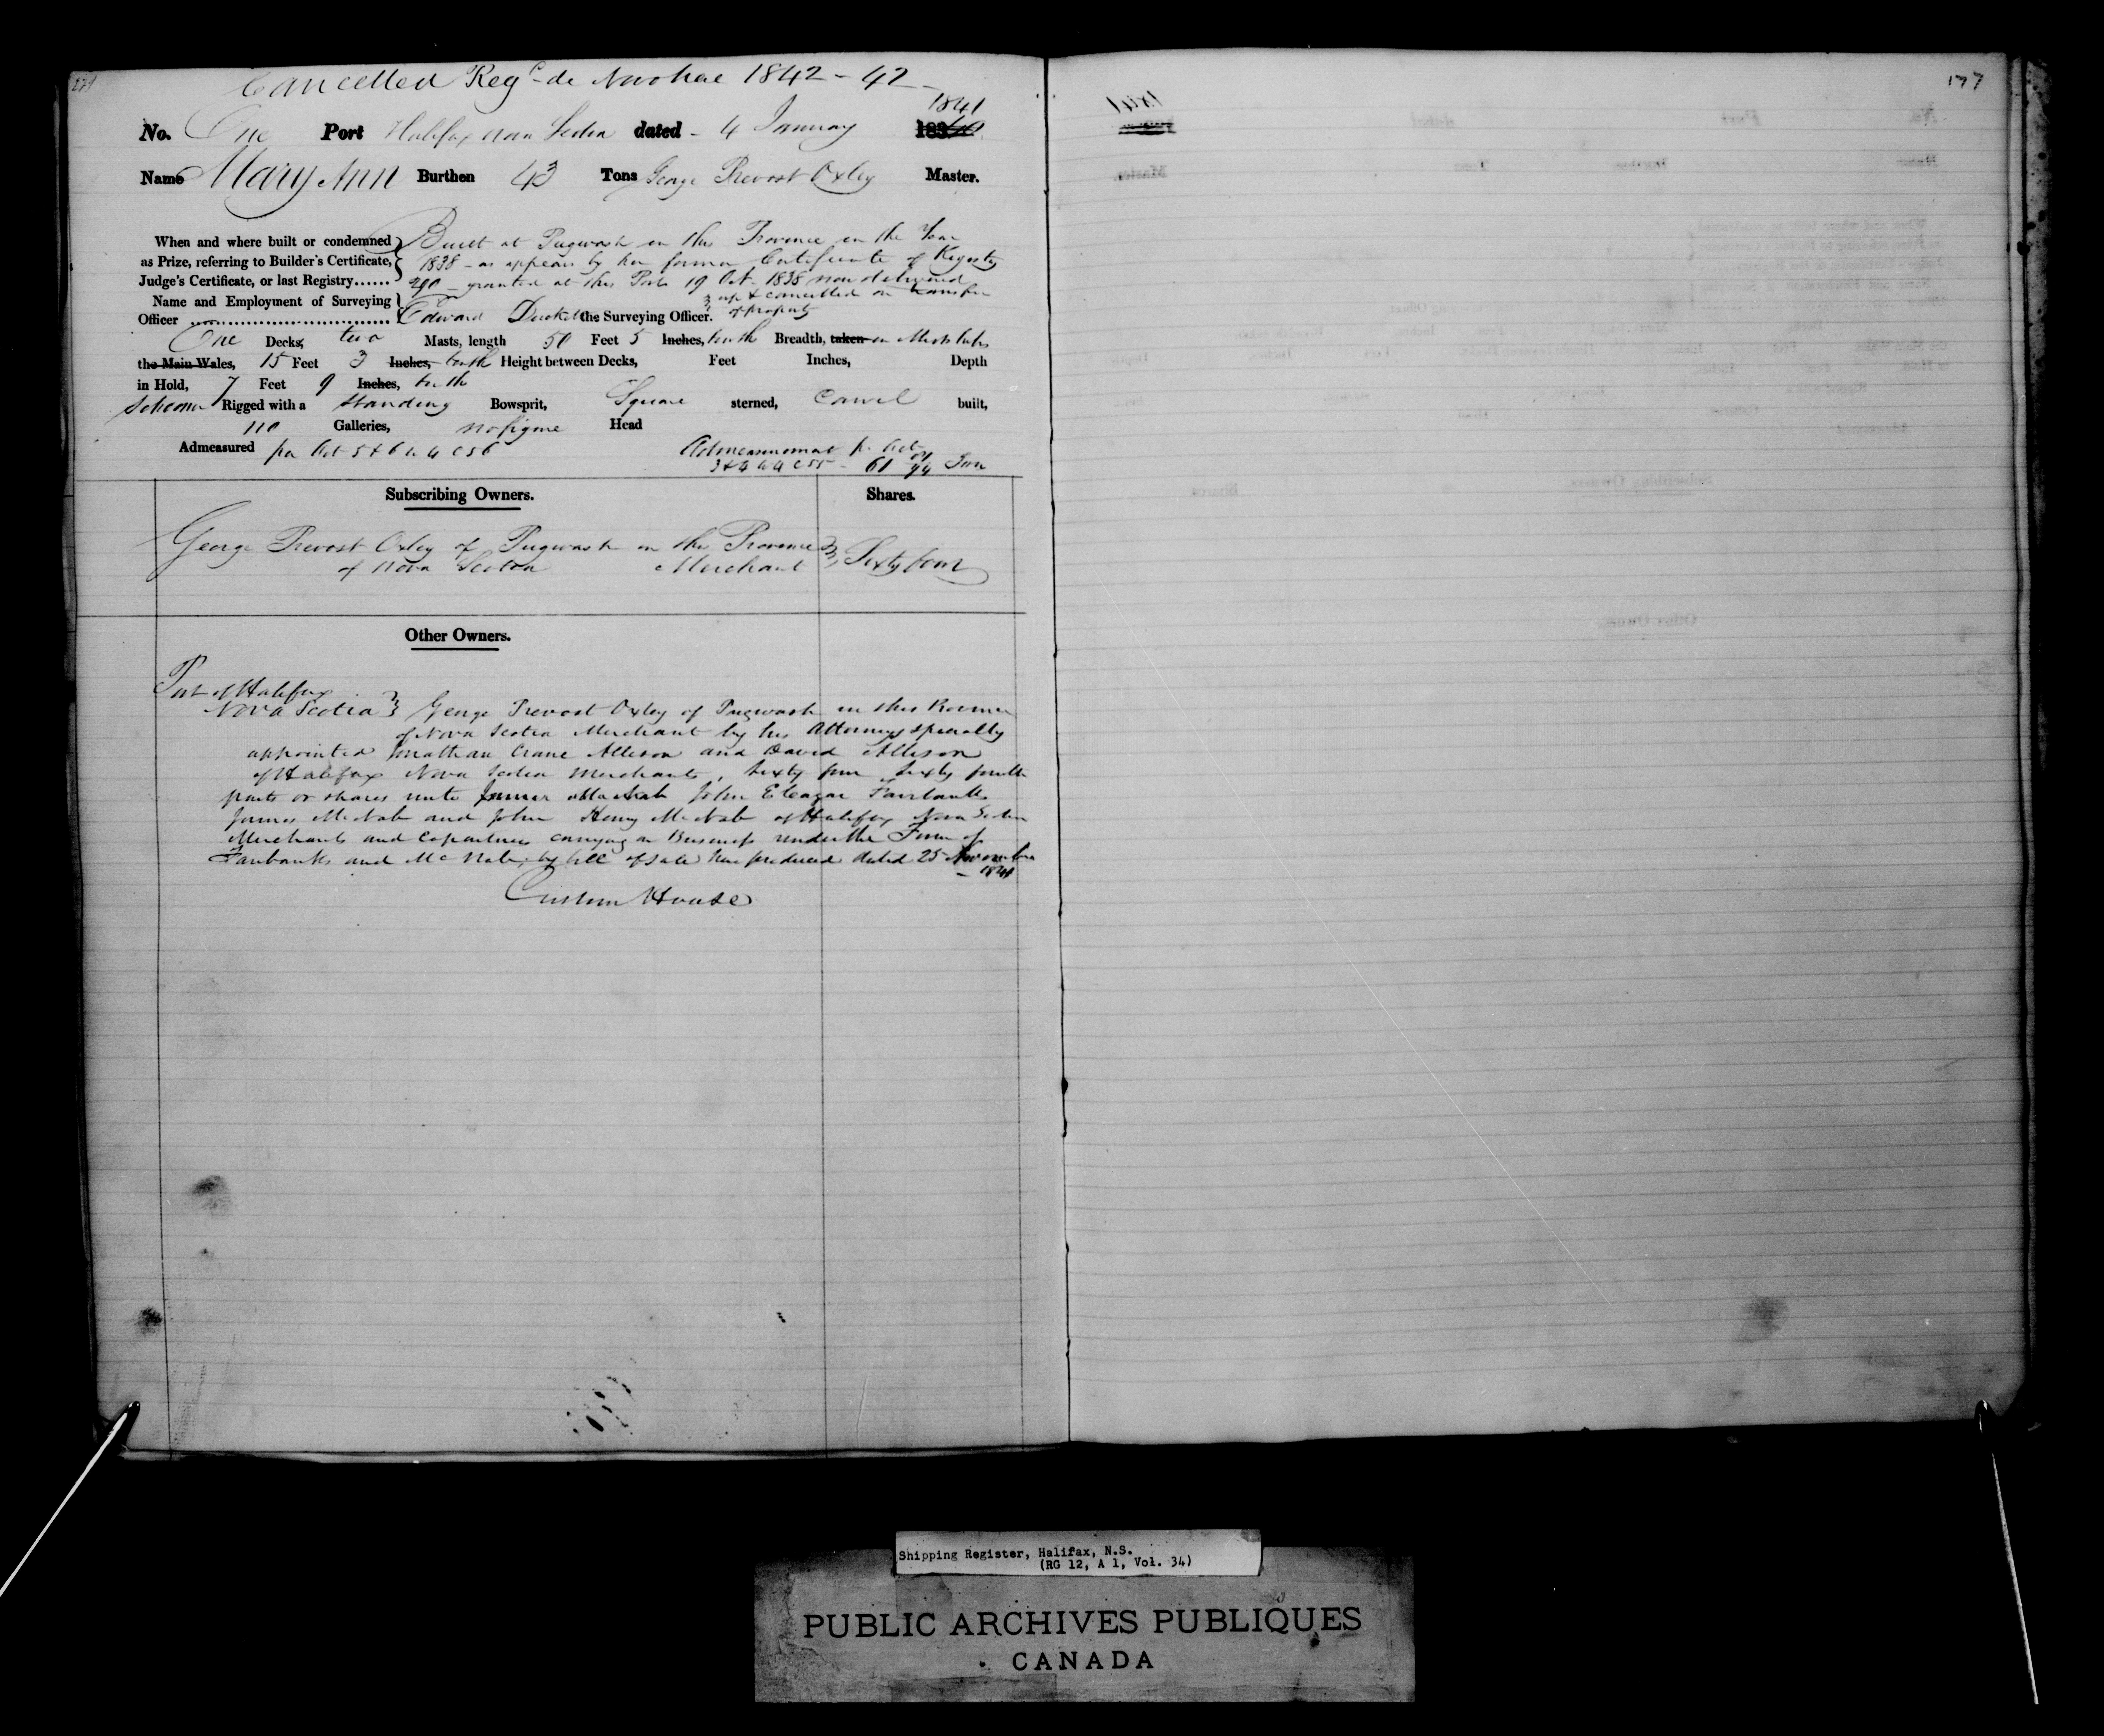 Cancelled Reg<sup>d</sup> de Novo here 1842 - 42
177
1841
No. One Port Halifax Nova Scotia dated - 4 January 1840
Name Mary Ann Burthen 43 Tons George Prevost Oxley Master.
When and where built or condemned Built at Pugwash in this Province in the Year
as Prize, referring to Builder's Certificate, 1838 - as appears by her former Certificate of Registry
Judge's Certificate, or last Registry...... granted at this Port 19 Oct. 1838 now delivered
Name and Employment of Surveying up & cancelled on transfer
Officer Edward the Surveying Officer. of property
One Decks, two Masts, length 50 Feet 5 Inches, tenths Breadth, taken in Midships
the Main Wales, 15 Feet 3 Inches, tenths Height between Decks, Feet Inches, Depth
in Hold, 7 Feet 9 Inches, tenths
Schooner Rigged with a Standing Bowsprit, Square sterned, Carvel built,
no Galleries, no figure Head
Admeasured per Act 5 & 6 W 4 C 56 Admeasurement pr Act
3 & 4 W 4 C 55 - 61 Tons
Subscribing Owners. Shares.
George Prevost Oxley of Pugwash in this Province
of Nova Scotia Merchant Sixty four
Other Owners.
Port of Halifax
Nova Scotia George Prevost Oxley of Pugwash in this Province
of Nova Scotia Merchant by his Attorneys specially
appointed Jonathan Crane Allison and David Allison
of Halifax Nova Scotia Merchants, Sixty four Sixty fourth
parts or shares unto John Eleazar Fairbanks
James McNab and John Henry McNab of Halifax Nova Scotia
Merchants and Copartners carrying on Business under the Firm of
Fairbanks and McNab, by bill of sale here produced dated 25 November
1841
Custom House
Shipping Register, Halifax, N.S.
(RG 12, A 1, Vol. 34)
PUBLIC ARCHIVES PUBLIQUES
CANADA